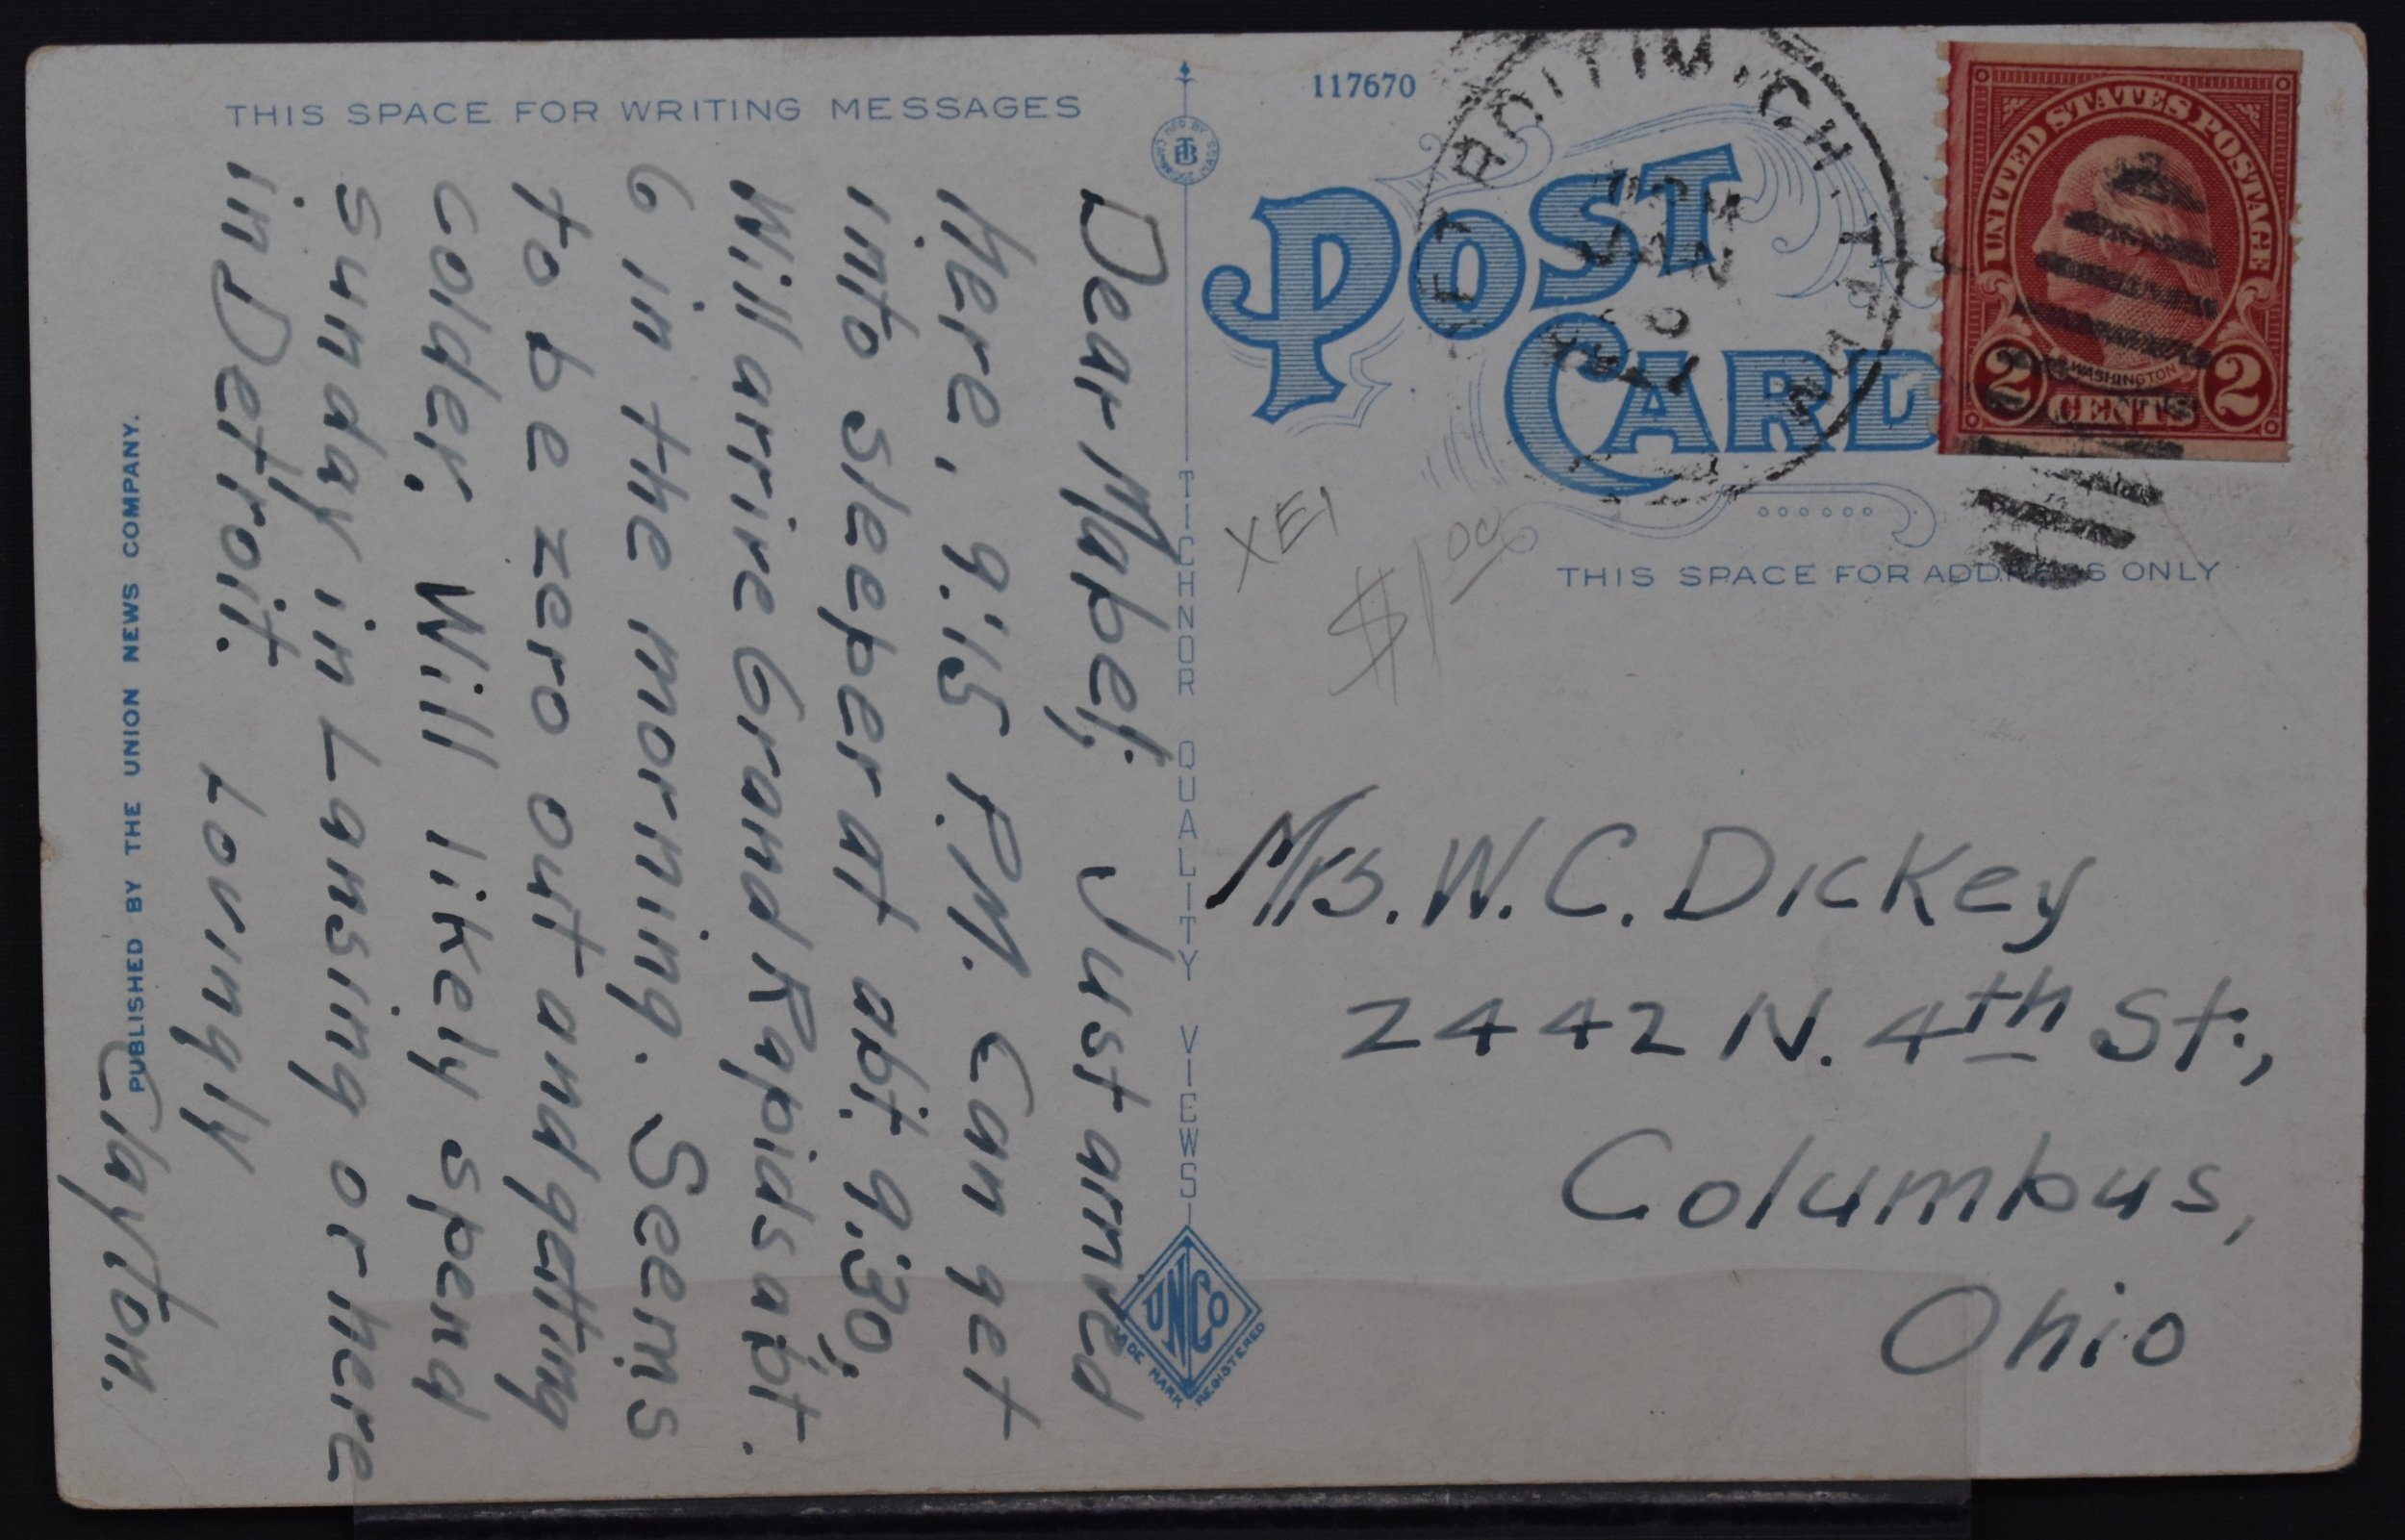 THIS SPACE FOR WRITING MESSAGES
Dear Mabel; Just arrived
Here, 9:15 P.M. Can get
into sleeper at abt. 9:30,
Will arrive Grand Rapids abt.
6 in the morning. Seems
to be zero out and getting
colder. Will likely spend
sunday in Lansing or here
in Detroit. Lovingly
Clayton.
PUBLISHED BY THE UNION NEWS COMPANY.
TICHNOR QUALITY VIEWS
UNCO
TRADE MARK REGISTERED
117670
POST
CARD
THIS SPACE FOR ADDRESS ONLY
XE1
$1.00
UNITED STATES POSTAGE
WASHINGTON
2 CENTS 2
Mrs. W. C. Dickey
2442 N. 4th St.,
Columbus,
Ohio